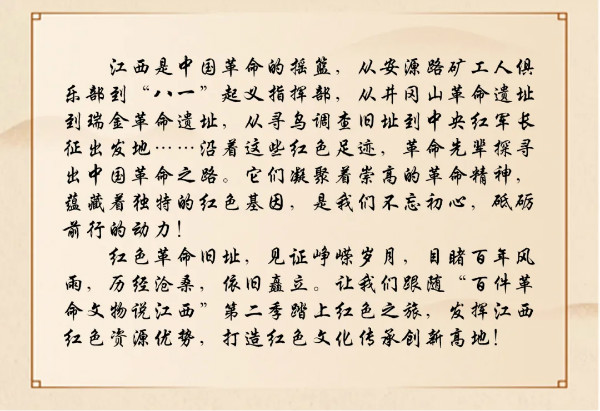 江西是中国革命的摇篮，从安源路矿工人俱
乐部到“八一”起义指挥部，从井冈山革命遗址
到瑞金革命遗址，从寻乌调查旧址到中央红军长
征出发地……沿着这些红色足迹，革命先辈探寻
出中国革命之路。它们凝聚着崇高的革命精神，
蕴藏着独特的红色基因，是我们不忘初心，砥砺
前行的动力！
红色革命旧址，见证峥嵘岁月，目睹百年风
雨，历经沧桑，依旧矗立。让我们跟随“百件革
命文物说江西”第二季踏上红色之旅，发挥江西
红色资源优势，打造红色文化传承创新高地！